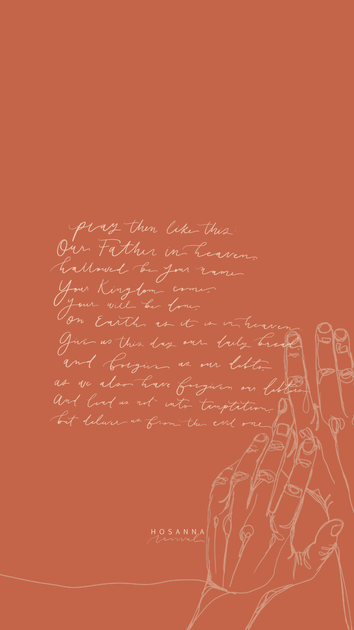 pray then like this:
Our Father in heaven,
hallowed be your name.
Your Kingdom come,
Your will be done,
on Earth as it is in heaven.
Give us this day our daily bread
and forgive us our debts,
as we also have forgiven our debtors.
And lead us not into temptation,
but deliver us from the evil one.
HOSANNA
revival